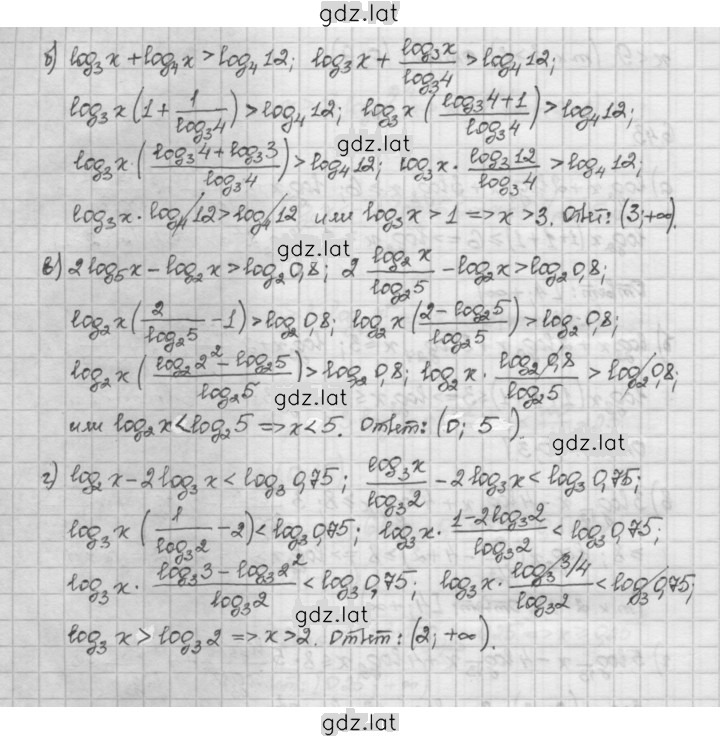 gdz.lat
б) log₃x + log₄x > log₄12; log₃x + log₃x/log₃4 > log₄12;
log₃x(1 + 1/log₃4) > log₄12; log₃x((log₃4+1)/log₃4) > log₄12;
gdz.lat
log₃x·((log₃4+log₃3)/log₃4) > log₄12; log₃x·log₃12/log₃4 > log₄12;
log₃x·log₄12 > log₄12 или log₃x > 1 => x > 3. Ответ: (3; +∞).
gdz.lat
в) 2log₅x − log₂x > log₂0,8; 2 log₂x/log₂5 − log₂x > log₂0,8;
log₂x(2/log₂5 − 1) > log₂0,8; log₂x((2−log₂5)/log₂5) > log₂0,8;
log₂x((log₂2²−log₂5)/log₂5) > log₂0,8; log₂x·log₂0,8/log₂5 > log₂0,8;
gdz.lat
или log₂x < log₂5 => x < 5. Ответ: (0; 5)
gdz.lat
г) log₂x − 2log₃x < log₃0,75; log₃x/log₃2 − 2log₃x < log₃0,75;
gdz.lat
log₃x(1/log₃2 − 2) < log₃0,75; log₃x·(1−2log₃2)/log₃2 < log₃0,75;
log₃x·(log₃3−log₃2²)/log₃2 < log₃0,75; log₃x·log₃3/4/log₃2 < log₃0,75;
gdz.lat
log₃x > log₃2 => x > 2. Ответ: (2; +∞).
gdz.lat